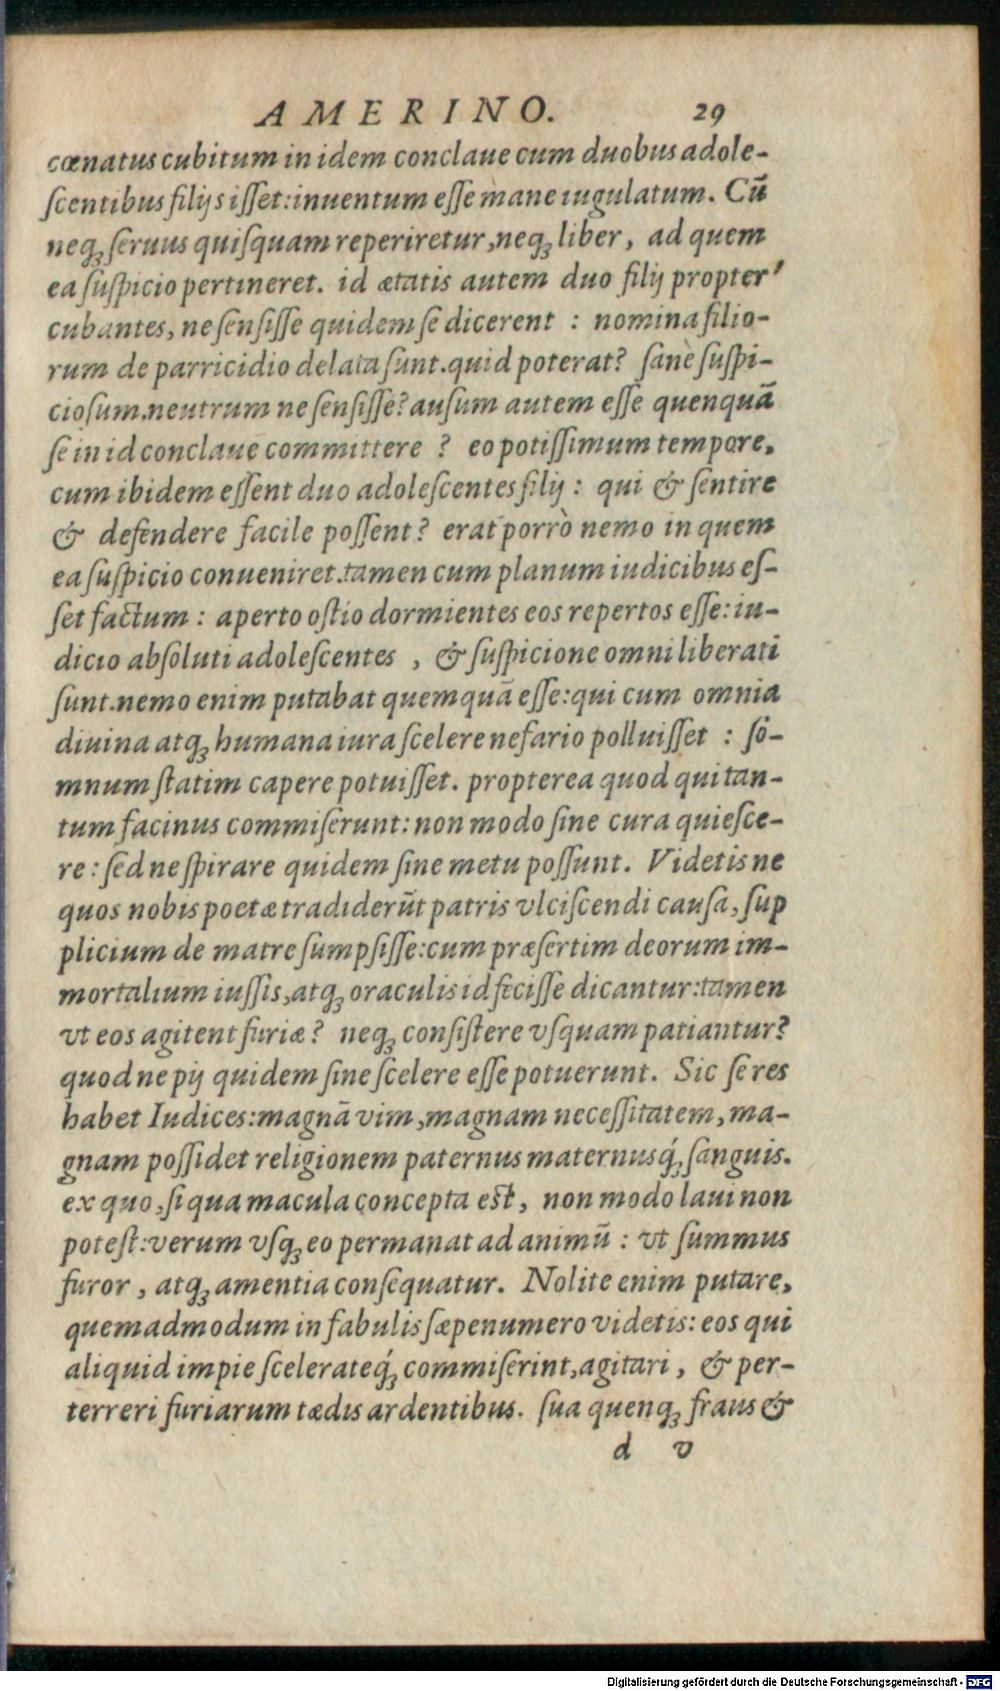 AMERINO. 29
cœnatus cubitum in idem conclaue cum duobus adole-
ſcentibus filijs iſſet: inuentum eſſe mane iugulatum. Cū
neqꝫ ſeruus quiſquam reperiretur, neqꝫ liber, ad quem
ea ſuſpicio pertineret. id ætatis autem duo filij propter
cubantes, ne ſenſiſſe quidem ſe dicerent : nomina filio-
rum de parricidio delata ſunt. quid poterat? ſanè ſuſpi-
cioſum. neutrum ne ſenſiſſe? auſum autem eſſe quenquā
ſe in id conclaue committere ? eo potiſſimum tempore,
cum ibidem eſſent duo adoleſcentes filij : qui & ſentire
& defendere facile poſſent? erat porrò nemo in quem
ea ſuſpicio conueniret. tamen cum planum iudicibus eſ-
ſet factum : aperto oſtio dormientes eos repertos eſſe: iu-
dicio abſoluti adoleſcentes , & ſuſpicione omni liberati
ſunt. nemo enim putabat quemquā eſſe: qui cum omnia
diuina atqꝫ humana iura ſcelere nefario polluiſſet : ſo-
mnum ſtatim capere potuiſſet. propterea quod qui tan-
tum facinus commiſerunt: non modo ſine cura quieſce-
re : ſed ne ſpirare quidem ſine metu poſſunt. Videtis ne
quos nobis poetæ tradiderūt patris vlciſcendi cauſa, ſup
plicium de matre ſumpſiſſe: cum præſertim deorum im-
mortalium iuſſis, atqꝫ oraculis id feciſſe dicantur: tamen
vt eos agitent furiæ? neqꝫ conſiſtere vſquam patiantur?
quod ne pij quidem ſine ſcelere eſſe potuerunt. Sic ſe res
habet Iudices: magnā vim, magnam neceſſitatem, ma-
gnam poſſidet religionem paternus maternusq́ꝫ ſanguis.
ex quo, ſi qua macula concepta eſt, non modo laui non
poteſt: verum vſqꝫ eo permanat ad animū : vt ſummus
furor , atqꝫ amentia conſequatur. Nolite enim putare,
quemadmodum in fabulis ſæpenumero videtis: eos qui
aliquid impie ſcelerateq́ꝫ commiſerint, agitari , & per-
terreri furiarum tædis ardentibus. ſua quenqꝫ fraus &
d v
Digitalisierung gefördert durch die Deutsche Forschungsgemeinschaft - DFG